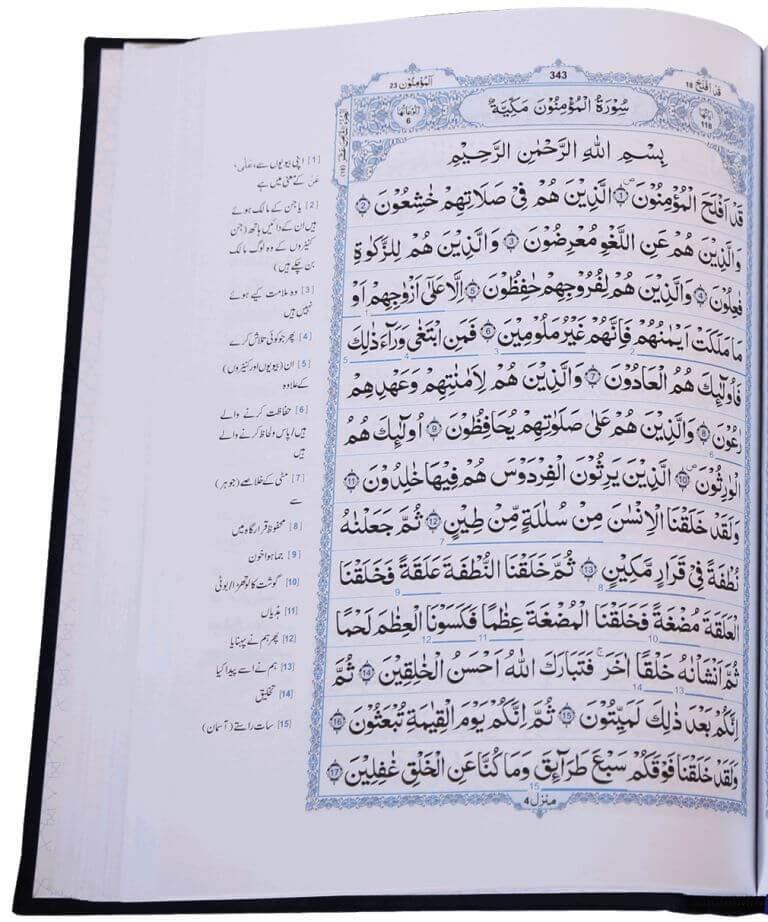 قَدْ اَفْلَحَ 18
343
اَلْمُؤْمِنُوْن 23
اٰیَاتُهَا 118
سُوْرَةُ الْمُؤْمِنُوْنَ مَكِّيَّةٌ
رُكُوْعَاتُهَا 6
بِسْمِ اللّٰهِ الرَّحْمٰنِ الرَّحِيْمِ
قَدْ اَفْلَحَ الْمُؤْمِنُوْنَ ① الَّذِيْنَ هُمْ فِيْ صَلَاتِهِمْ خٰشِعُوْنَ ②
وَالَّذِيْنَ هُمْ عَنِ اللَّغْوِ مُعْرِضُوْنَ ③ وَالَّذِيْنَ هُمْ لِلزَّكٰوةِ
فٰعِلُوْنَ ④ وَالَّذِيْنَ هُمْ لِفُرُوْجِهِمْ حٰفِظُوْنَ ⑤ اِلَّا عَلٰٓى اَزْوَاجِهِمْ اَوْ
مَا مَلَكَتْ اَيْمٰنُهُمْ فَاِنَّهُمْ غَيْرُ مَلُوْمِيْنَ ⑥ فَمَنِ ابْتَغٰى وَرَآءَ ذٰلِكَ
فَاُولٰٓئِكَ هُمُ الْعَادُوْنَ ⑦ وَالَّذِيْنَ هُمْ لِاَمٰنٰتِهِمْ وَعَهْدِهِمْ
رٰعُوْنَ ⑧ وَالَّذِيْنَ هُمْ عَلٰى صَلَوٰتِهِمْ يُحَافِظُوْنَ ⑨ اُولٰٓئِكَ هُمُ
الْوٰرِثُوْنَ ⑩ الَّذِيْنَ يَرِثُوْنَ الْفِرْدَوْسَ هُمْ فِيْهَا خٰلِدُوْنَ ⑪
وَلَقَدْ خَلَقْنَا الْاِنْسٰنَ مِنْ سُلٰلَةٍ مِّنْ طِيْنٍ ⑫ ثُمَّ جَعَلْنٰهُ
نُطْفَةً فِيْ قَرَارٍ مَّكِيْنٍ ⑬ ثُمَّ خَلَقْنَا النُّطْفَةَ عَلَقَةً فَخَلَقْنَا
الْعَلَقَةَ مُضْغَةً فَخَلَقْنَا الْمُضْغَةَ عِظٰمًا فَكَسَوْنَا الْعِظٰمَ لَحْمًا
ثُمَّ اَنْشَاْنٰهُ خَلْقًا اٰخَرَ ۚ فَتَبَارَكَ اللّٰهُ اَحْسَنُ الْخٰلِقِيْنَ ⑭ ثُمَّ
اِنَّكُمْ بَعْدَ ذٰلِكَ لَمَيِّتُوْنَ ⑮ ثُمَّ اِنَّكُمْ يَوْمَ الْقِيٰمَةِ تُبْعَثُوْنَ ⑯
وَلَقَدْ خَلَقْنَا فَوْقَكُمْ سَبْعَ طَرَآئِقَ وَمَا كُنَّا عَنِ الْخَلْقِ غٰفِلِيْنَ ⑰
منزل 4
[1] اپنی بیویوں سے، عَلٰی،
عَنْ کے معنی میں ہے
[2] یا جن کے مالک ہوئے
ہیں ان کے دائیں ہاتھ (جن
کنیزوں کے وہ لوگ مالک
بن چکے ہیں)
[3] وہ ملامت کیے ہوئے
نہیں ہیں
[4] پھر جو کوئی تلاش کرے
[5] ان (بیویوں اور کنیزوں)
کے علاوہ
[6] حفاظت کرنے والے
ہیں/پاس و لحاظ کرنے والے
ہیں
[7] مٹی کے خلاصے (جوہر)
سے
[8] محفوظ قرار گاہ میں
[9] جما ہوا خون
[10] گوشت کا لوتھڑا/بوٹی
[11] ہڈیاں
[12] پھر ہم نے پہنایا
[13] ہم نے اسے پیدا کیا
[14] تخلیق
[15] سات راستے (آسمان)